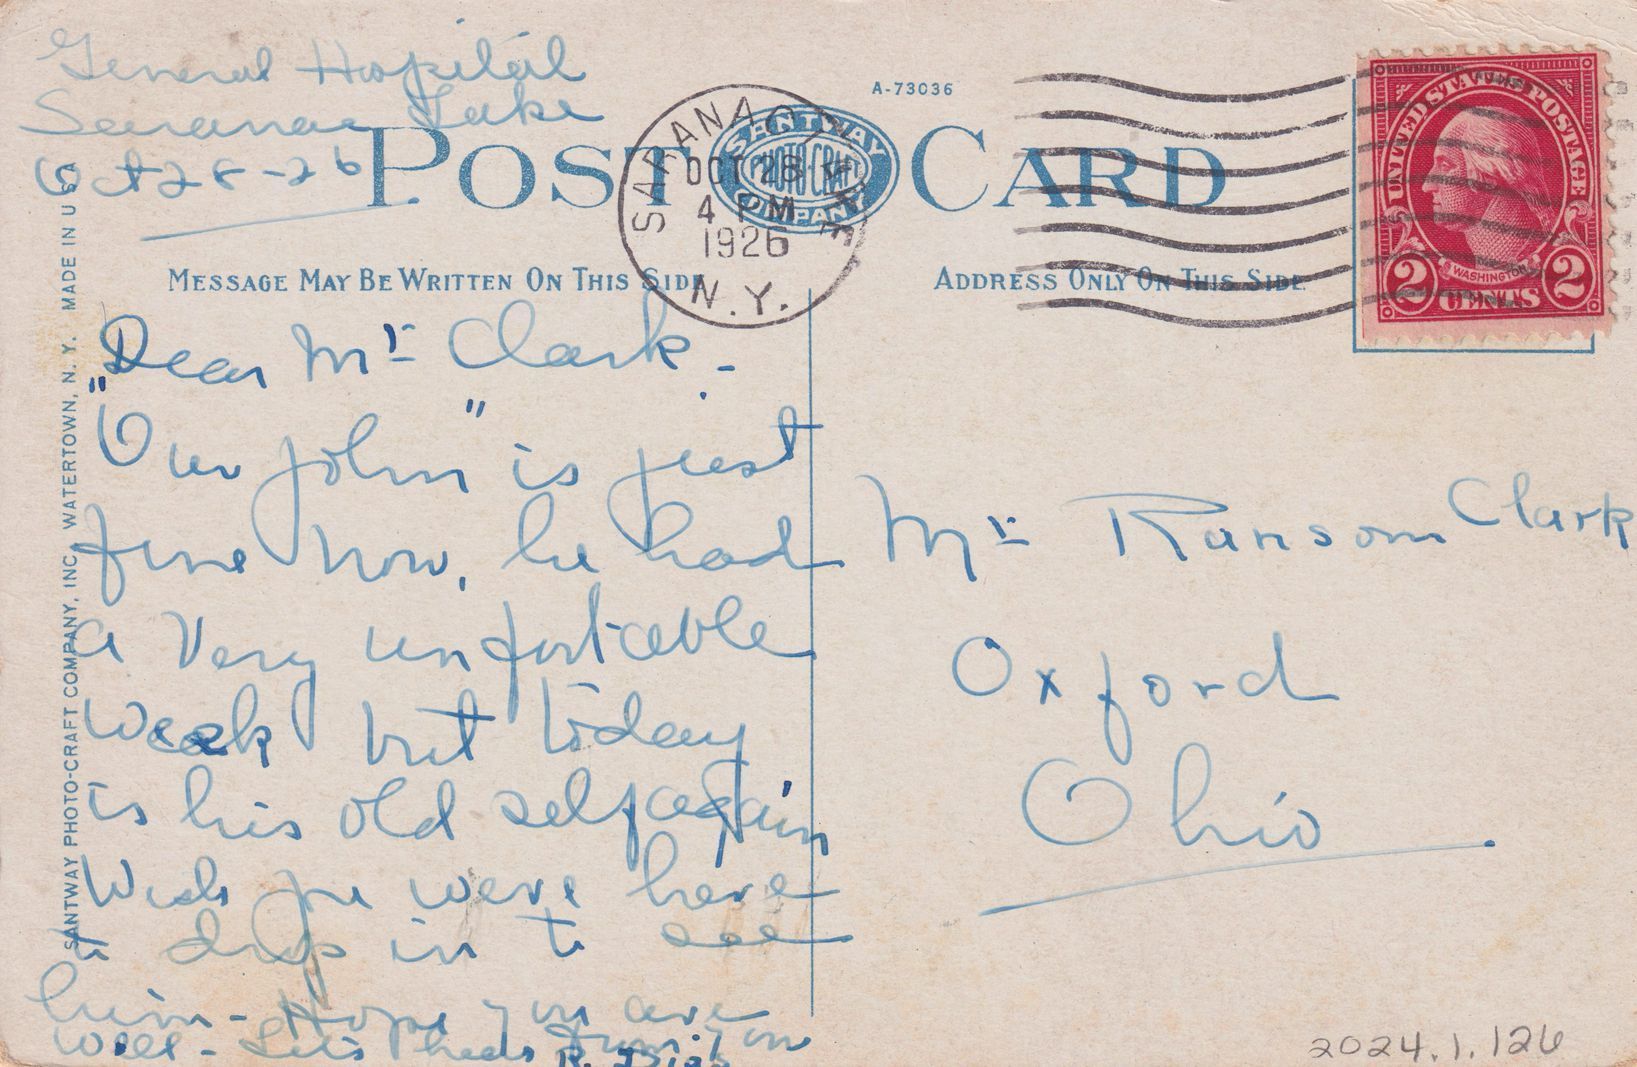 General Hospital
Saranac Lake
Oct 28-26
A-73036
POST CARD
SANTWAY
PHOTO-CRAFT
COMPANY
SARANAC LAKE
OCT 28
4 PM
1926
N.Y.
UNITED STATES POSTAGE
WASHINGTON
2 CENTS 2
MESSAGE MAY BE WRITTEN ON THIS SIDE
ADDRESS ONLY ON THIS SIDE
SANTWAY PHOTO-CRAFT COMPANY, INC. WATERTOWN, N. Y. MADE IN U S A
Dear Mr Clark -
"Our John" is just
fine now, he had
a very unfortable
week but today
is his old self again
Wish you were here
to drop in to see
him - Hope you are
well - Let's from you
R. Digs
Mr Ransom Clark
Oxford
Ohio.
2024.1.126